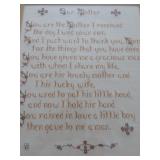 Our Mother
You are the Mother I received
the day I wed your son
And I just want to thank you, Mom
For the things that you have done
You have given me a gracious man
with whom I share my life
You are his lovely mother and
I his lucky wife.
You used to pat his little head
and now I hold his hand
You raised in love a little boy
then gave to me a man.